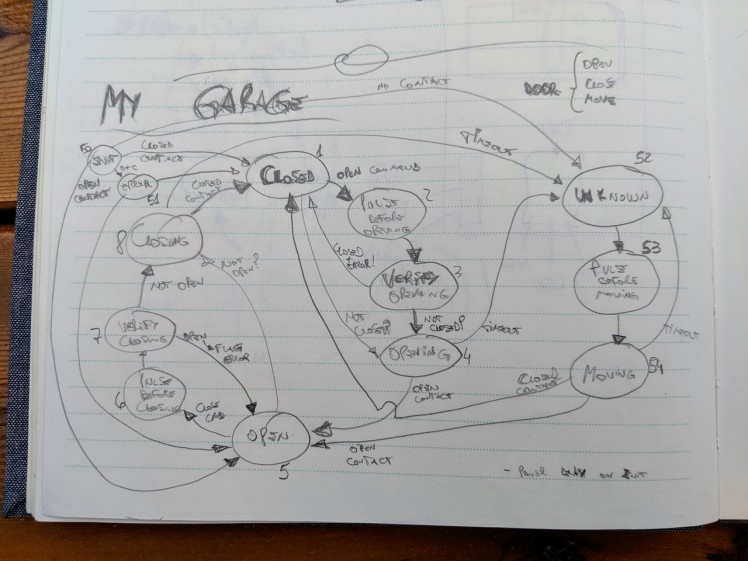 MY GARAGE
DOOR
OPEN
CLOSE
MOVE
NO CONTACT
TIMEOUT
50
INIT
CLOSED
CONTACT
OPEN
CONTACT
ERROR
51
1
CLOSED
OPEN COMMAND
CLOSED
CONTACT
2
PULSE
BEFORE
OPENING
52
UNKNOWN
8
CLOSING
NOT
OPEN?
CLOSED
ERROR!
3
VERIFY
OPENING
53
PULSE
BEFORE
MOVING
NOT OPEN
NOT
CLOSED?
NOT
CLOSED?
TIMEOUT
TIMEOUT
7
VERIFY
CLOSING
OPEN
ERROR
OPENING
4
54
MOVING
6
PULSE
BEFORE
CLOSING
CLOSE
CMD
OPEN
CONTACT
CLOSED
CONTACT
OPEN
5
OPEN
CONTACT